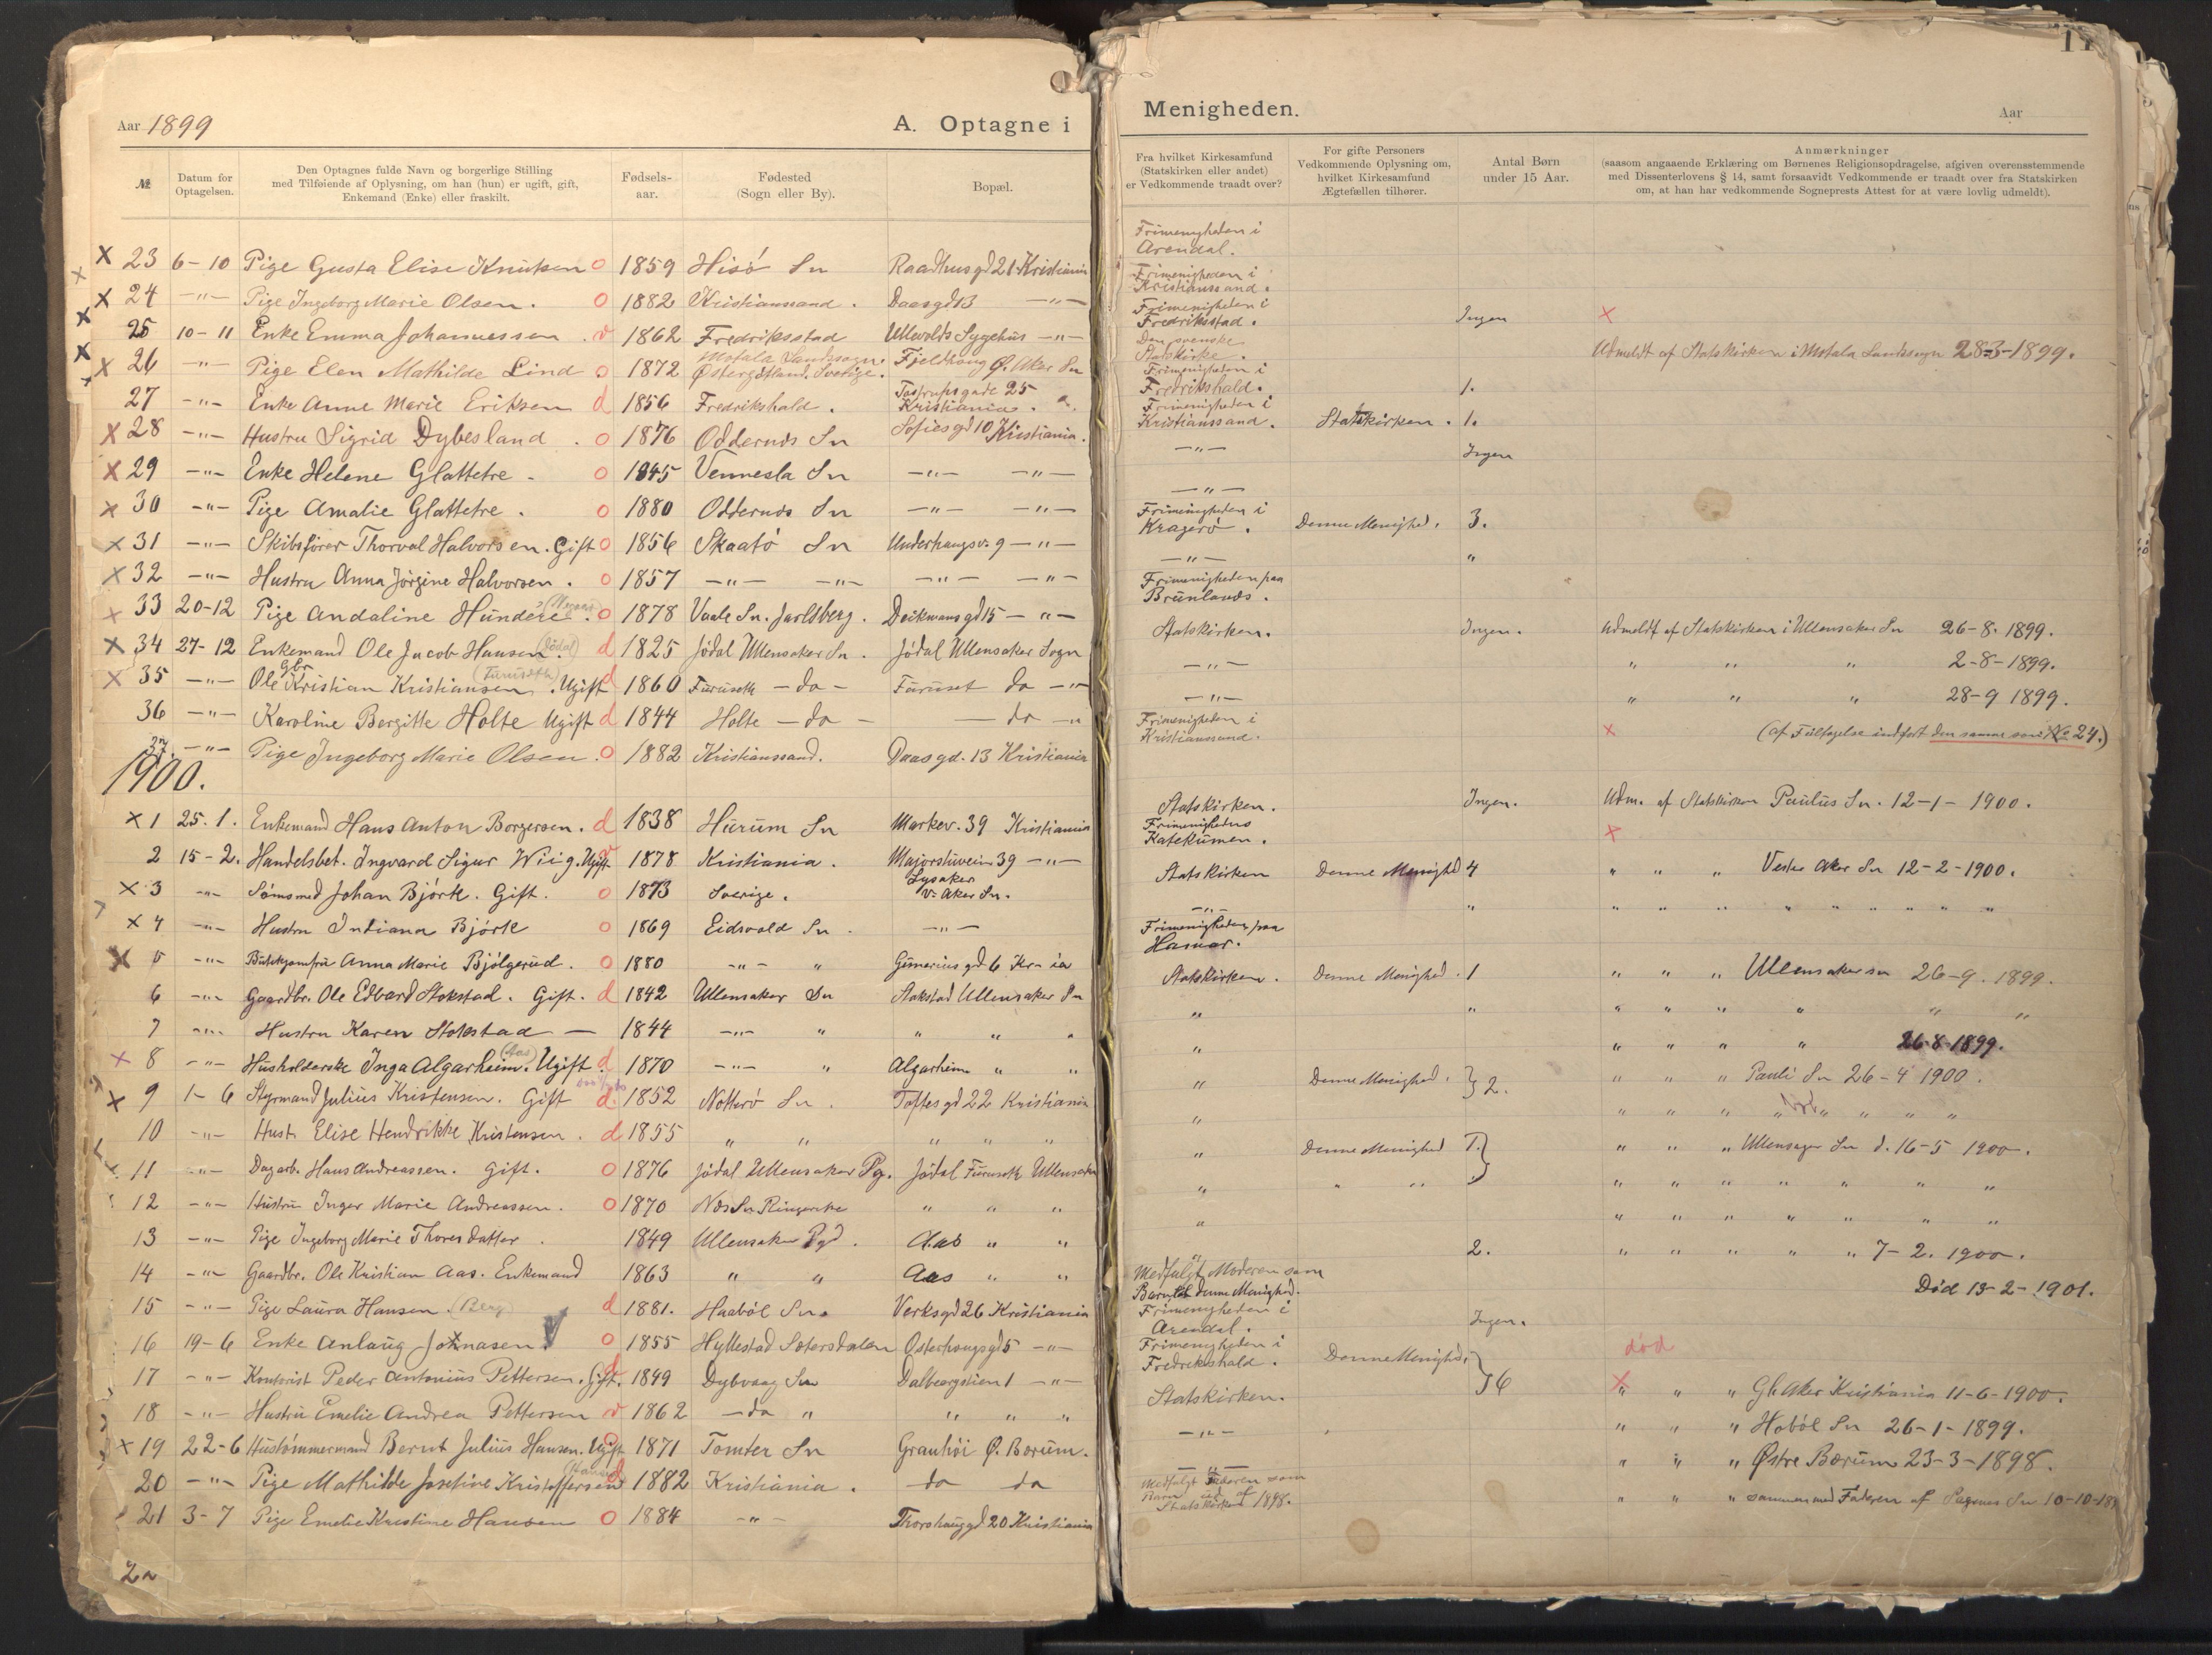 Aar 1899
A. Optagne i
№
Datum for Optagelsen.
Den Optagnes fulde Navn og borgerlige Stilling
med Tilføiende af Oplysning, om han (hun) er ugift, gift,
Enkemand (Enke) eller fraskilt.
Fødsels-
aar.
Fødested
(Sogn eller By).
Bopæl.
X 23 6-10 Pige Gusta Elise Knutsen o 1859 Hisö Sn Raadhusgd 21 Kristiania
X 24 -"- Pige Ingeborg Marie Olsen. o 1882 Kristianssand. Daasgd 13 -"-
X 25 10-11 Enke Emma Johannessen. v 1862 Fredriksstad Ullevolds Sygehus -"-
X 26 -"- Pige Elen Mathilde Lind o 1872 Motala Landssogn. Östergötland. Sverige. Fjeldhoug Ø. Aker Sn
27 -"- Enke Anne Marie Eriksen d 1856 Fredrikshald. Tostrupsgade 25 Kristiania.
X 28 -"- Hustru Sigrid Dybesland. o 1876 Oddernes Sn Sofiesgd 10 Kristiania.
X 29 -"- Enke Helene Glattetre - o 1845 Vennesla Sn -"- -"-
X 30 -"- Pige Amalie Glattetre. o 1880 Oddernes Sn -"- -"-
X 31 -"- Skibsfører Thorval Halvorsen. Gift o 1856 Skaatö Sn Underhaugsv. 9 -"-
X 32 -"- Hustru Anna Jörgine Halvorsen. o 1857 -"- -"- -"- -"-
X 33 20-12 Pige Andaline Hundere. o 1878 Vaale Sn. Jarlsberg. Deikmansgd 15 -"-
X 34 27-12 Enkemand Ole Jacob Hansen (Jödal). d 1825 Jödal Ullensaker Sn. Jödal Ullensaker Sogn
X 35 -"- Gbr Ole Kristian Kristiansen (Furuseth). Ugift d 1860 Furuseth -do- Furuset do -"-
36 -"- Karoline Bergitte Holte Ugift d 1844 Holte -do- -do-"
37. -"- Pige Ingeborg Marie Olsen. o 1882 Kristianssand. Daasgd. 13 Kristiania
1900.
X 1 25. 1. Enkemand Hans Anton Borgersen. d 1838 Hurum Sn Markev. 39 Kristiania
2 15-2. Handelsbet. Ingvard Sigur Wiig. Ugift v 1878 Kristiania. Majorstuvein 39 -"-
X 3 -"- Sömsmed Johan Björk. Gift. o 1873 Sverige. Lysaker V. Aker Sn.
X 4 -"- Hustru Indiana Björk o 1869 Eidsvold Sn. -"-
X 5 -"- Butikjomfru Anna Marie Bjölgerud. o 1880 -"- " Gümeriusgd 6 Kr-ia
6 -"- Gaardbr. Ole Edvard Stokstad. Gift. d 1842 Ullensaker Sn Stokstad Ullensaker Sn
7 -"- Hustru Karen Stokstad — 1844 -"- " " " "
X 8 -"- Husholderske Inga Algarheim (Aas). Ugift. d 1870 -"- " Algarheim " "
X 9 1-6 Styrmand Julius Kristensen. Gift d. 1852 Nötterö Sn. Toftesgd 22 Kristiania
10 -"- Hust. Elise Hendrikke Kristensen. d 1855 " " " " "
11 -"- Dagarb. Hans Andreassen. Gift. o 1876 Jödal Ullensaker Pg. Jödal Furuseth Ullensaker
12 -"- Hustru Inger Marie Andreassen. o 1870 Næs Sn Ringerike " " "
13 -"- Pige Ingeborg Marie Thoresdatter. 1849 Ullensaker Pgd. Aas " "
14 -"- Gaardbr. Ole Kristian Aas. Enkemand 1863 " " Aas " "
15 -"- Pige Laura Hansen. (Berg) d 1881. Haaböl Sn. Verksgd 26 Kristiania
16 19-6 Enke Anlaug Jonasen. o 1855 Hyllestad Sætersdalen Osterhausgd 5 -"-
17 -"- Kontorist Peder Antonius Pettersen. Gift. 1849 Dybvaag Sn Dalbergstien 1 -"-
18 -"- Hustru Emelie Andrea Pettersen v 1862 -do " " " "
X 19 22-6 Hustömmermand Bernt Julius Hansen. Ugift 1871 Tomter Sn Granhöi Ø. Bærum.
20 -"- Pige Mathilde Josefine Kristoffersen d 1882 Kristiania. do do
21 3-7 Pige Emelie Kristine Hansen o 1884 -"- Thorshauggd 20 Kristiania
Menigheden.
Aar
Fra hvilket Kirkesamfund
(Statskirken eller andet)
er Vedkommende traadt over?
For gifte Personers
Vedkommende Oplysning om,
hvilket Kirkesamfund
Ægtefællen tilhører.
Antal Børn
under 15 Aar.
Anmærkninger
(saasom angaaende Erklæring om Børnenes Religionsopdragelse, afgiven overensstemmende
med Dissenterlovens § 14, samt forsaavidt Vedkommende er traadt over fra Statskirken
om, at han har vedkommende Sogneprests Attest for at være lovlig udmeldt).
Frimenigheden i
Arendal.
Frimenigheden i
Kristianssand.
Frimenigheden i
Fredriksstad. Ingen X
Den svenske
Statskirke. Udmeldt af Statskirken i Motala Landssogn 28-3-1899.
Frimenigheden i
Fredrikshald. 1.
Frimenigheden i
Kristianssand. Statskirken. 1.
-"- Ingen
-"-
Frimenigheden i
Kragerö. Denne Menighed. 3.
-"- "
Frimenigheden paa
Brunlands.
Statskirken. Ingen. Udmeldt af Statskirken i Ullensaker Sn 26-8-1899.
-"- " " " 2-8-1899.
-"- " " " 28-9 1899.
Frimenigheden i
Kristianssand. X (af Feiltagelse indfört den samme som No 24.)
Statskirken. Ingen. Udm. af Statskirken Paulus Sn. 12-1-1900.
Frimenighedens
Katekumen. X
Statskirken Denne Menighed 4 " " " Vestre Aker Sn 12-2-1900.
-"- " " " " " " " " " "
Frimenigheden paa
Hamar.
Statskirken. Denne Menighed. 1 " " " Ullensaker sn 26-9. 1899.
" " " " " " " "
" " " " " 26-8-1899.
" Denne Menighed. } 2. " " " Pauli Sn 26-4 1900.
" " " " " " " "
" Denne Menighed 1. } " " " Ullensager Sn d. 16-5 1900.
" " " " " " " " " "
" " " " " " " "
" 2. " " " " " 7-2. 1900.
Medfulgt Moderen som
Barn denne Menighed. Död 13-2-1901.
Frimenigheden i
Arendal. Ingen.
Frimenigheden i
Fredrikshald. Denne Menighed. } 6 död
Statskirken. X " " " Gl. Aker Kristiania 11-6-1900.
-"- " " " Hoböl Sn 26-1-1899.
-"- " " " Østre Bærum 23-3-1898.
Medfulgt Faderen som
Barn ud af
Statskirken 1898. " " " sammen med Faderen af Sn 10-10-189